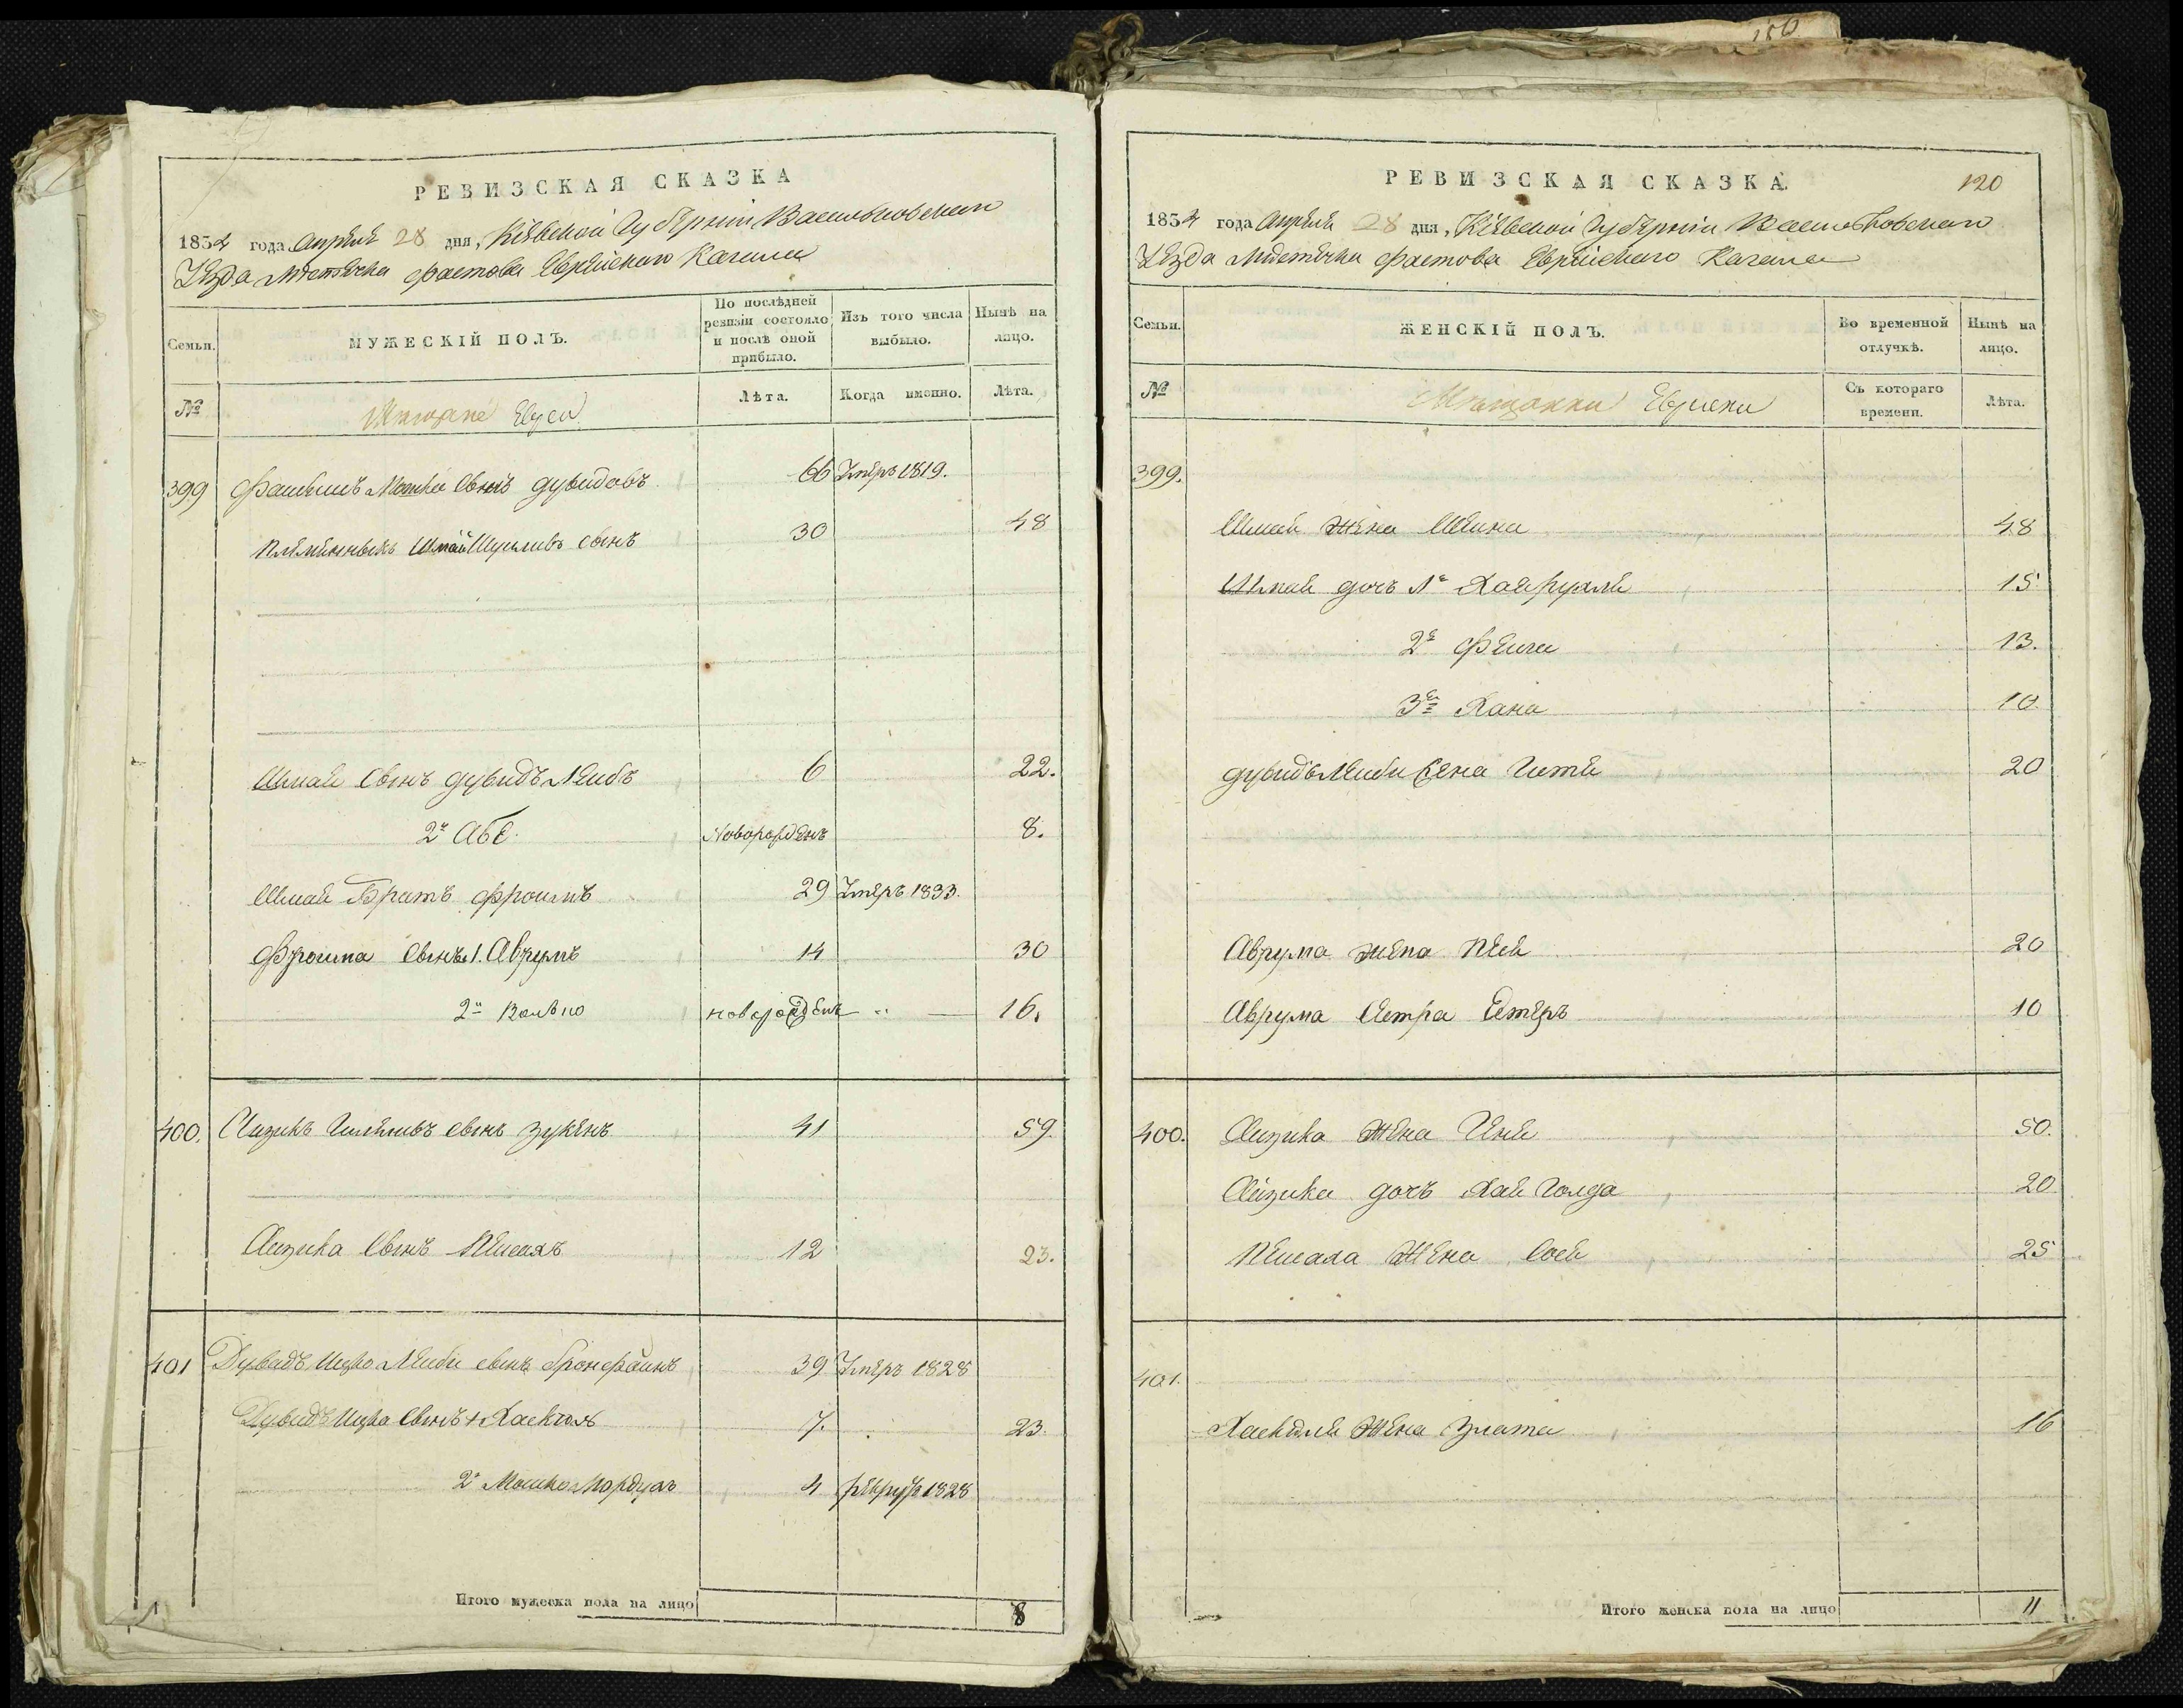 150
РЕВИЗСКАЯ СКАЗКА
1834 года Апреля 28 дня, Кіевской Губерніи Васильковскаго
Уезда Местечка Фастова Еврейскаго Кагала
Семьи.
МУЖЕСКІЙ ПОЛЪ.
По послѣдней ревизіи состояло и послѣ оной прибыло.
Изъ того числа выбыло.
Нынѣ на лицо.
№
Мещане Евреи
Лѣта.
Когда именно.
Лѣта.
399 Мошка Сынъ Дувидовъ 66 Умеръ 1819.
Племенникъ Шмай Шулимъ Сынъ 30 48
Шмаи Сынъ Дувидъ Леибъ 6 22.
2й Абе Новорожденъ 8.
Шмаи Братъ Фроимъ 29 Умеръ 1833.
Фроима Сынъ 1. Аврумъ 14 30
2й Волько новорожденъ " 16.
400. Аизикъ сынъ Зукенъ 41 59.
Аизика Сынъ Пейсахъ 12 23.
401 Дувидъ Ицко Леиби сынъ Гронфаинъ 39 Умеръ 1828
Дувидъ Ицка Сынъ 1 Хаскель 7. 23.
2й Мошко Мордухъ 4 рекрутъ 1828
Итого мужеска пола на лицо 8
РЕВИЗСКАЯ СКАЗКА.
120
1834 года Апреля 28 дня, Кіевской Губерніи Васильковскаго
Уезда Местечка Фастова Еврейскаго Кагала
Семьи.
ЖЕНСКІЙ ПОЛЪ.
Во временной отлучкѣ.
Нынѣ на лицо.
№
Мещанки Еврейки
Съ котораго времени.
Лѣта.
399.
Шмаи Жена Шеина 48
Шмаи дочь 1я Хая Рухля 15
2я Феига 13.
3я Хана 10
Дувидъ Леиби Жена Гитя 20
Аврума Жена Песя 20
Аврума Сестра Естеръ 10
400. Аизика Жена Геня 50.
Аизика дочь Хая Голда 20
Пейсаха Жена Сося 25
401.
Хаскеля Жена Злата 16
Итого женска пола на лицо 11